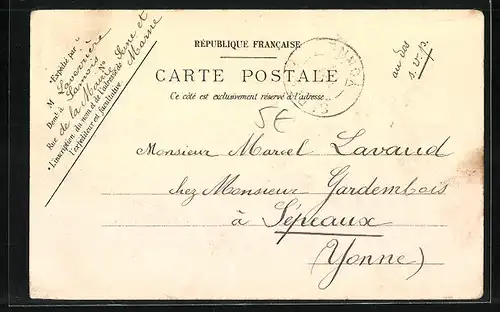 RÉPUBLIQUE FRANÇAISE
CARTE POSTALE
Ce côté est exclusivement réservé à l'adresse
Expédié par
M Laverrière
Demt à Samois
Rue de la Mairie No
Seine et Marne
L'inscription du nom et de l'adresse de
l'expéditeur est facultative.
au dos
s.v.p.
5E
Monsieur Marcel Lavaud
chez Monsieur Gardembois
à Sépeaux
(Yonne)